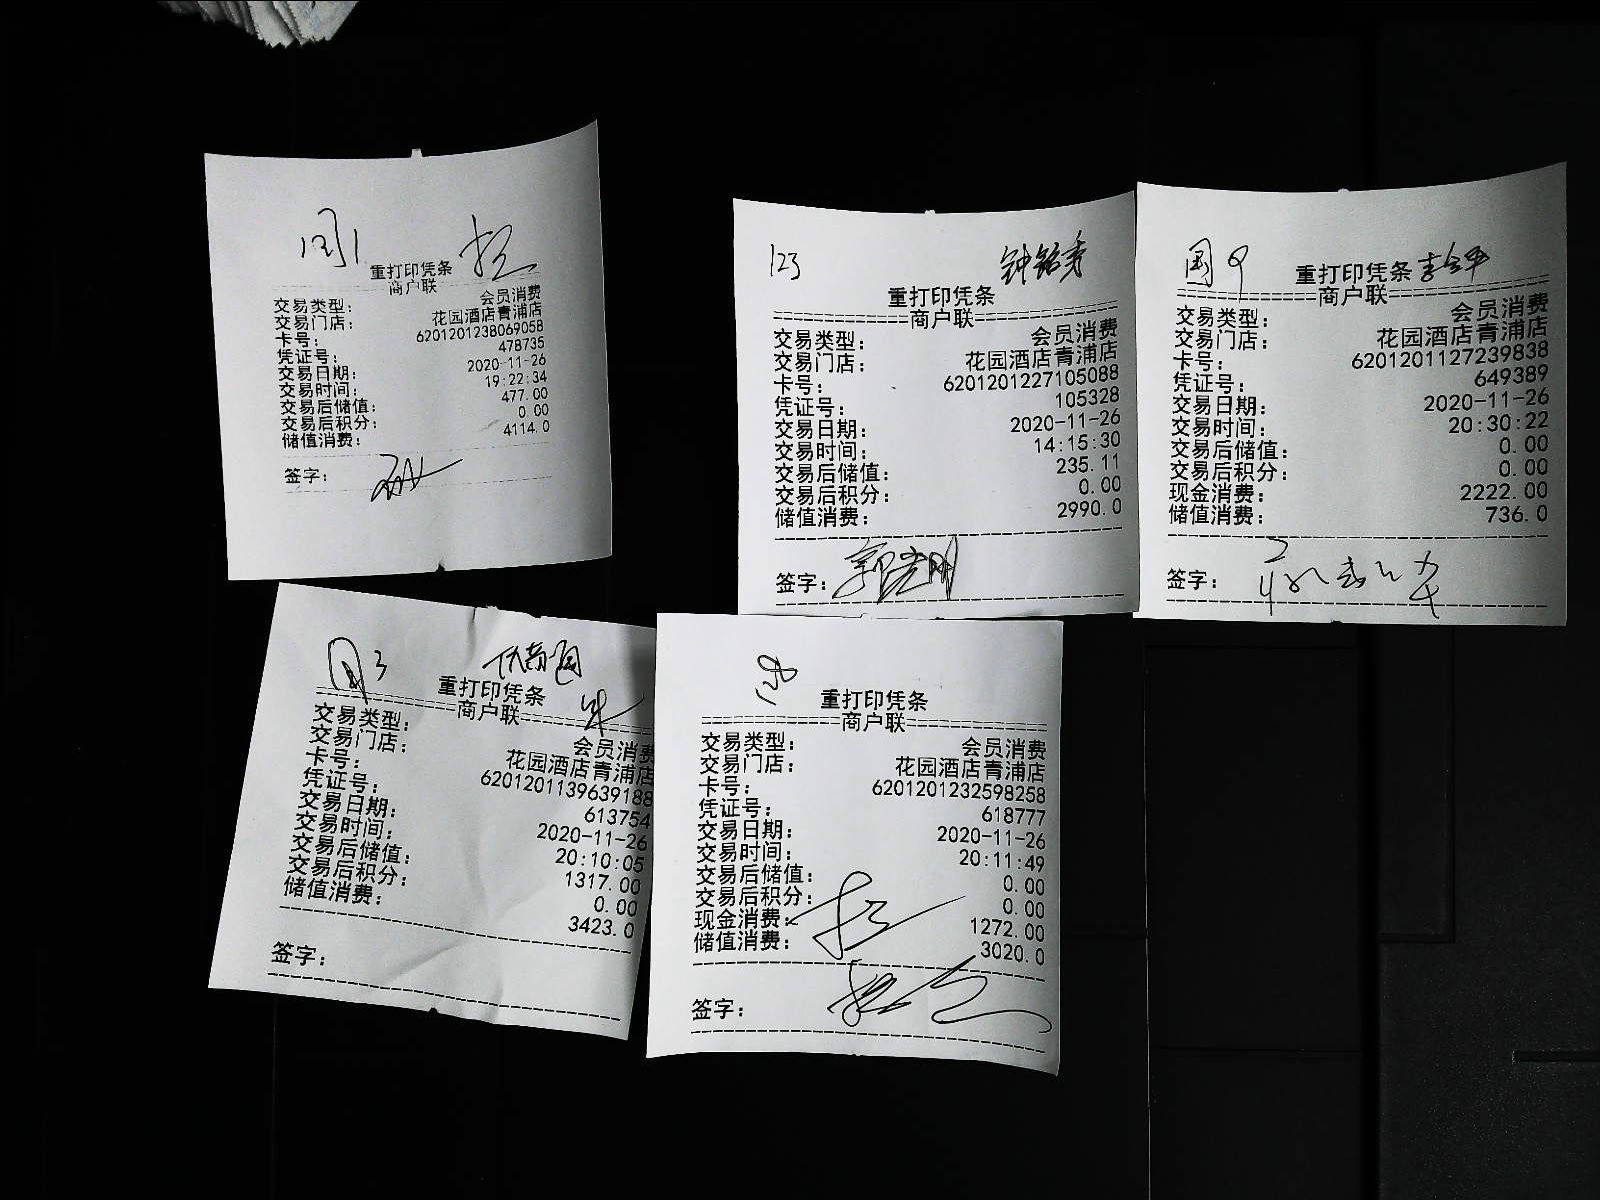 重打印凭条
商户联
交易类型： 会员消费
交易门店： 花园酒店青浦店
卡号： 6201201238069058
凭证号： 478735
交易日期： 2020-11-26
交易时间： 19:22:34
交易后储值： 477.00
交易后积分： 0.00
储值消费： 4114.0
签字：
123 钟铭秀
重打印凭条
商户联
交易类型： 会员消费
交易门店： 花园酒店青浦店
卡号： 6201201227105088
凭证号： 105328
交易日期： 2020-11-26
交易时间： 14:15:30
交易后储值： 235.11
交易后积分： 0.00
储值消费： 2990.0
签字：
重打印凭条
商户联
交易类型： 会员消费
交易门店： 花园酒店青浦店
卡号： 6201201127239838
凭证号： 649389
交易日期： 2020-11-26
交易时间： 20:30:22
交易后储值： 0.00
交易后积分： 0.00
现金消费： 2222.00
储值消费： 736.0
签字：
重打印凭条
商户联
交易类型： 会员消费
交易门店： 花园酒店青浦店
卡号： 6201201139639188
凭证号： 613754
交易日期： 2020-11-26
交易时间： 20:10:05
交易后储值： 1317.00
交易后积分： 0.00
储值消费： 3423.0
签字：
重打印凭条
商户联
交易类型： 会员消费
交易门店： 花园酒店青浦店
卡号： 6201201232598258
凭证号： 618777
交易日期： 2020-11-26
交易时间： 20:11:49
交易后储值： 0.00
交易后积分： 0.00
现金消费： 1272.00
储值消费： 3020.0
签字：